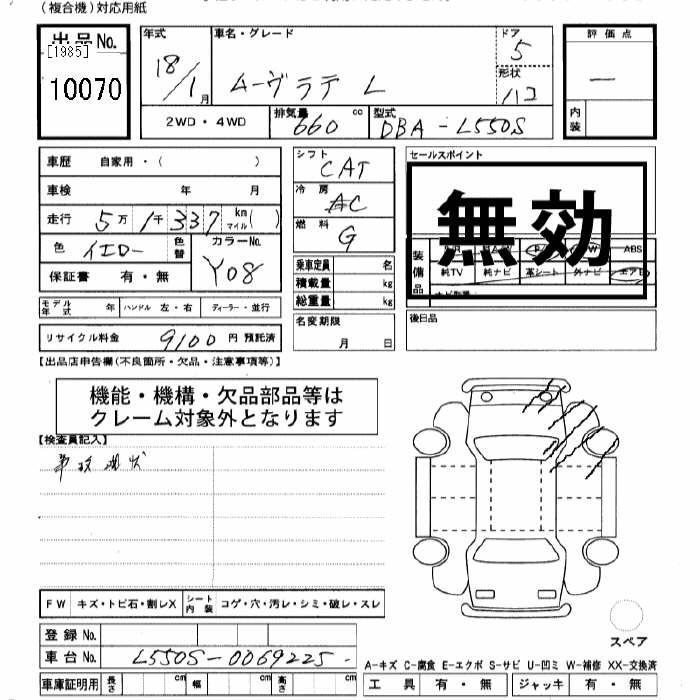 (複合機)対応用紙
出品No.
[1985]
10070
年式
18/1月
車名・グレード
ムーヴラテ L
ドア
5
形状
ハコ
評価点
―
内装
2WD・4WD
排気量 660 cc
型式 DBA-L550S
車歴 自家用・( )
車検 年 月
走行 5万1千337 km マイル( )
色 イエロー 色替 カラーNo. Y08
保証書 有・無
モデル年式 年 ハンドル 左・右 ディーラー・並行
リサイクル料金 9100 円 預託済
シフト CAT
冷房 AC
燃料 G
乗車定員 名
積載量 kg
総重量 kg
名変期限
月 日
セールスポイント
無効
装備品
ABS
純TV 純ナビ 革シート 外ナビ エアB
後日品
【出品店申告欄(不良箇所・欠品・注意事項等)】
機能・機構・欠品部品等は
クレーム対象外となります
【検査員記入】
事故現状
FW キズ・トビ石・割レX シート内装 コゲ・穴・汚レ・シミ・破レ・スレ
登録No.
車台No. L550S-0069225
車庫証明用 長さ cm 幅 cm 高さ cm
スペア
A-キズ C-腐食 E-エクボ S-サビ U-凹ミ W-補修 XX-交換済
工具 有・無 ジャッキ 有・無